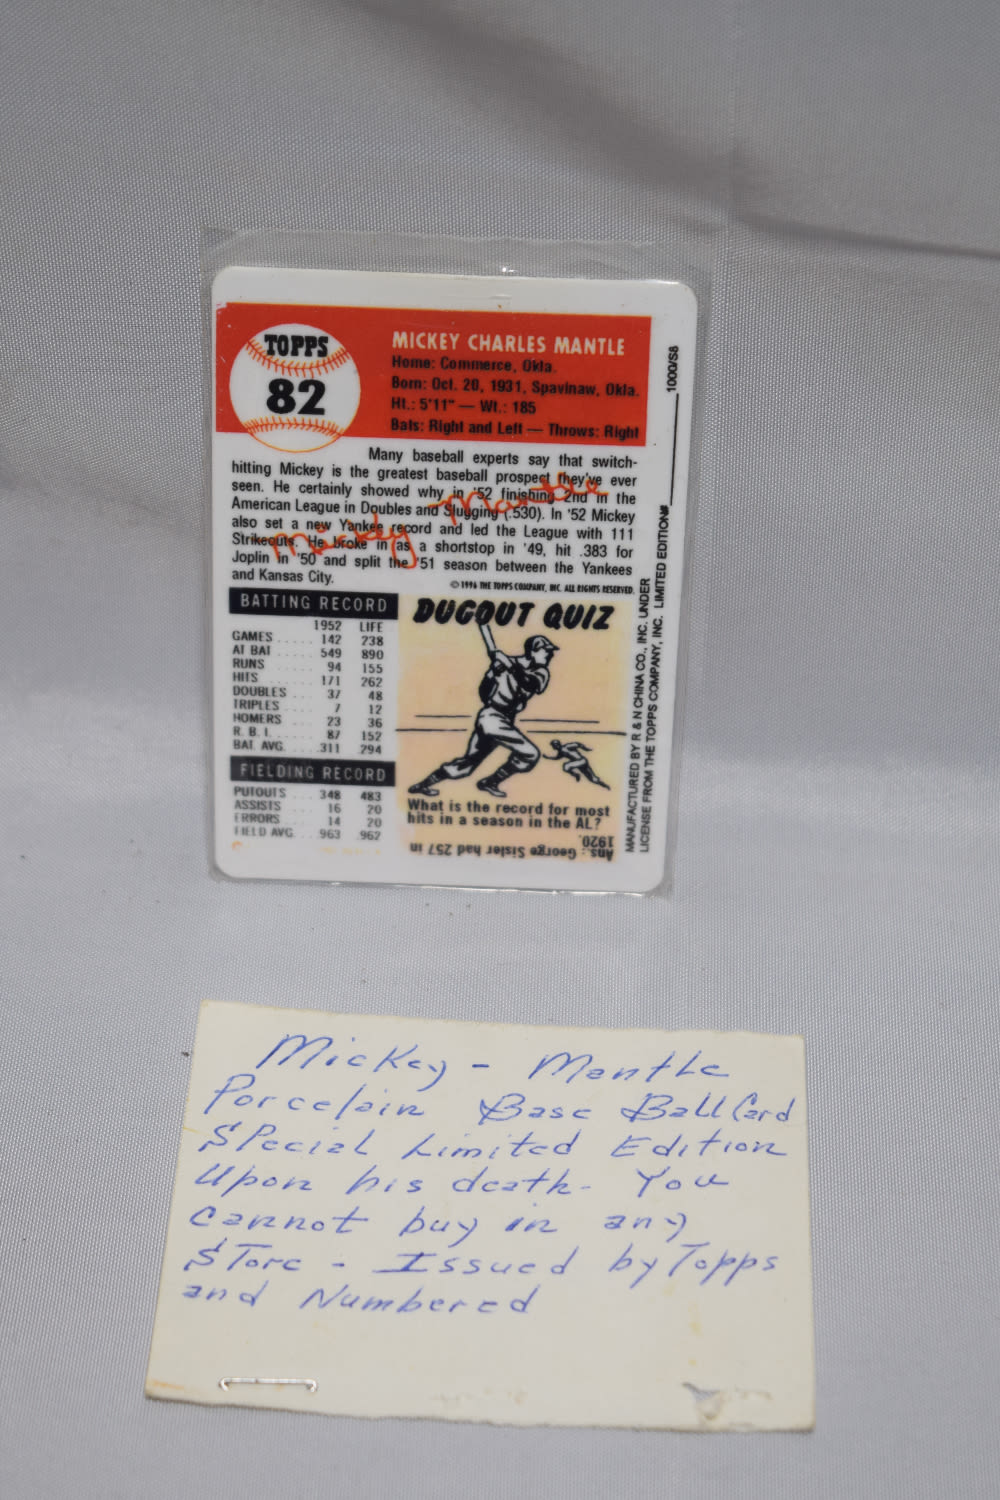 TOPPS
82
MICKEY CHARLES MANTLE
Home: Commerce, Okla.
Born: Oct. 20, 1931, Spavinaw, Okla.
Ht.: 5'11" — Wt.: 185
Bats: Right and Left — Throws: Right
Many baseball experts say that switch-
hitting Mickey is the greatest baseball prospect they've ever
seen. He certainly showed why in '52 finishing 2nd in the
American League in Doubles and Slugging (.530). In '52 Mickey
also set a new Yankee record and led the League with 111
Strikeouts. He broke in as a shortstop in '49, hit .383 for
Joplin in '50 and split the '51 season between the Yankees
and Kansas City.
Mickey Mantle
© 1996 THE TOPPS COMPANY, INC. ALL RIGHTS RESERVED.
BATTING RECORD
1952 LIFE
GAMES ..... 142 238
AT BAT ..... 549 890
RUNS ..... 94 155
HITS ..... 171 262
DOUBLES ... 37 48
TRIPLES .... 7 12
HOMERS .... 23 36
R. B. I. ..... 87 152
BAT. AVG. .311 .294
FIELDING RECORD
PUTOUTS ... 348 483
ASSISTS .... 16 20
ERRORS .... 14 20
FIELD AVG. .963 .962
DUGOUT QUIZ
What is the record for most
hits in a season in the AL?
Ans.: George Sisler had 257 in
1920.
MANUFACTURED BY R & N CHINA CO., INC. UNDER
LICENSE FROM THE TOPPS COMPANY, INC. LIMITED EDITION# 1000/S8
Mickey - Mantle
Porcelain Base Ball Card
Special Limited Edition
Upon his death - You
cannot buy in any
Store - Issued by Topps
and Numbered